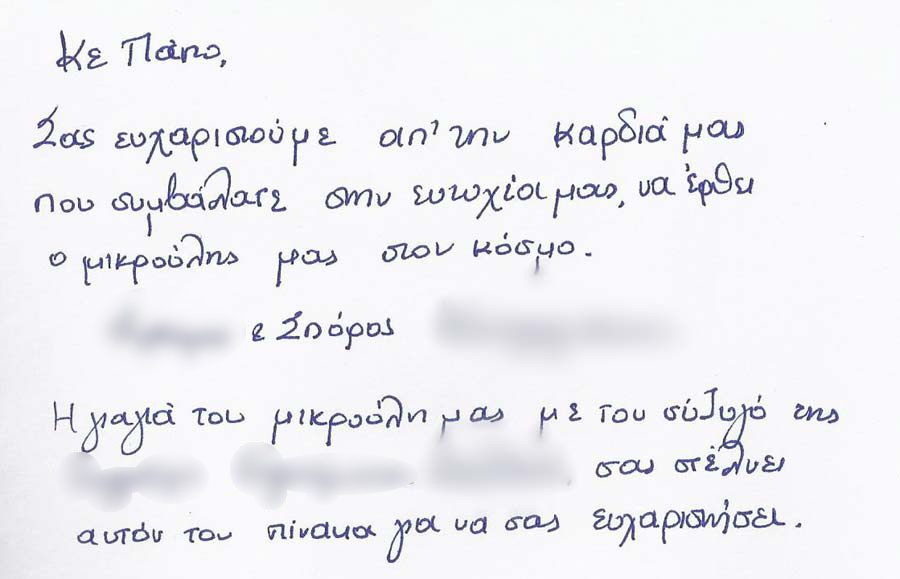 Κε Πάπο,
Σας ευχαριστούμε απ' την καρδιά μας
που συμβάλατε στην ευτυχία μας, να έρθει
ο μικρούλης μας στον κόσμο.
& Σπύρος
Η γιαγιά του μικρούλη μας με τον σύζυγό της
σας στέλνει
αυτόν τον πίνακα για να σας ευχαριστήσει.